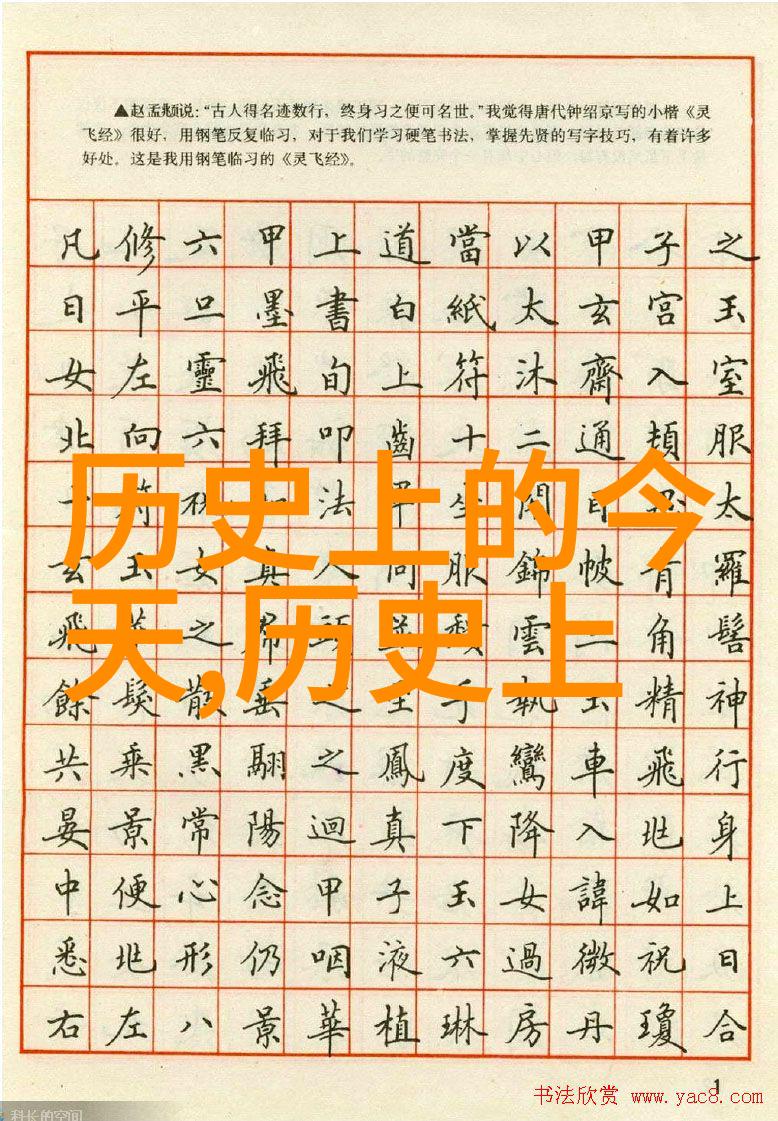 ▲赵孟頫说：“古人得名迹数行，终身习之便可名世。”我觉得唐代钟绍京写的小楷《灵
飞经》很好，用钢笔反复临习，对于我们学习硬笔书法，掌握先贤的写字技巧，有着许多
好处。这是我用钢笔临习的《灵飞经》。
凡修六甲上道當以甲子之
日平旦墨書白紙太玄宮玉
女左靈飛旬上符沐齋入室
北向六拜叩齒十二通頓服
符祝如法平坐閉目思太
玄玉女真人同服錦帔青羅
飛華之帬頭並積雲二角髻
餘髮散垂之至手執玉精神
共乘黑翮之鳳度鸞車飛行
晏景常陽迴真下降入北身
中便心念甲子玉女諱如上
悉北形仍咽液六過微祝日
右左八景華植琳房丹瓊合
历史上的今
天,历史上
1
书法欣赏 www.yac8.com
科长的空间